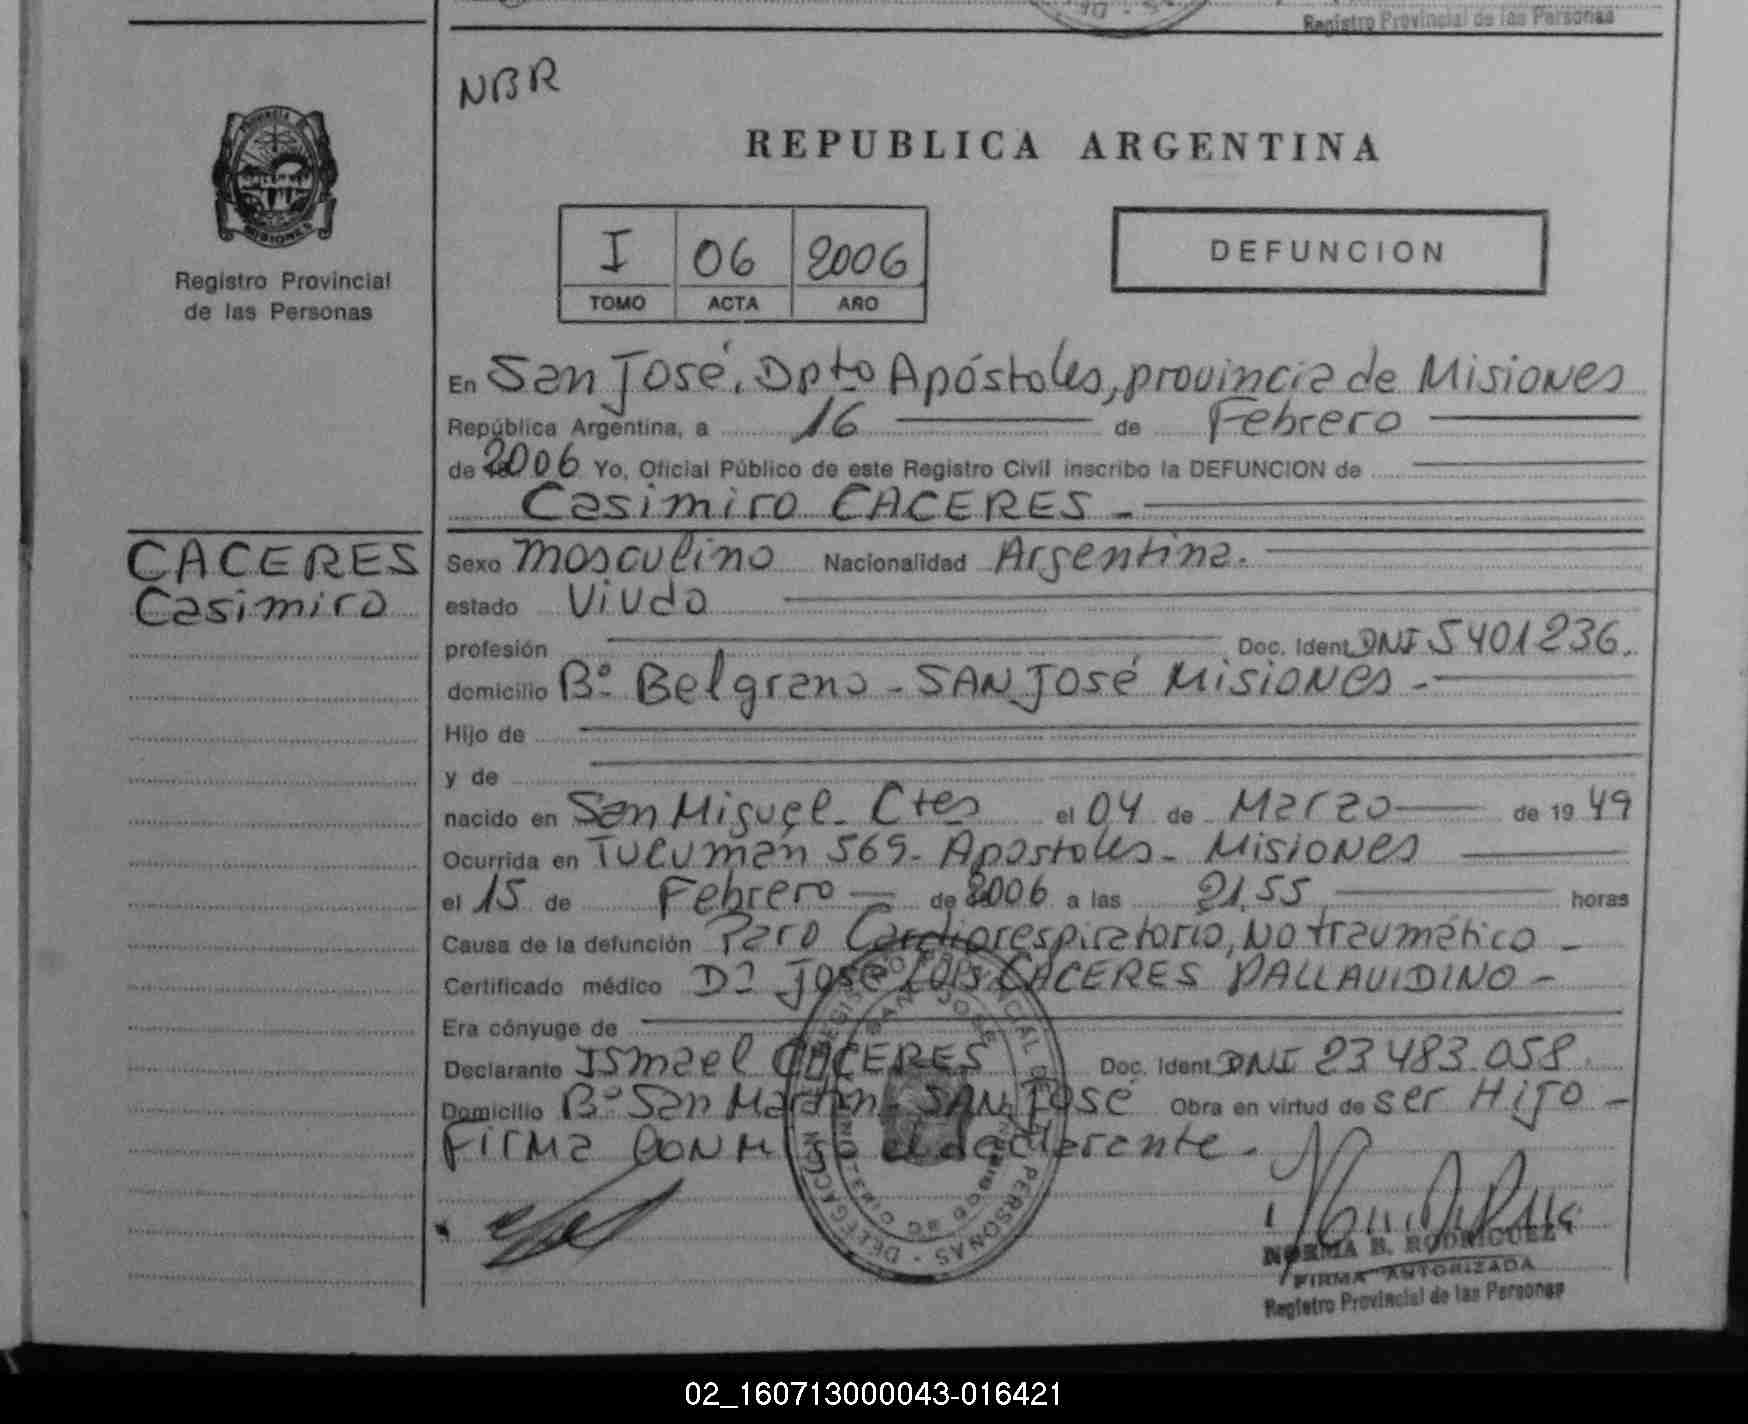 Registro Provincial de las Personas
NBR
REPUBLICA ARGENTINA
MISIONES
I 06 2006
TOMO ACTA AÑO
DEFUNCION
Registro Provincial
de las Personas
En San José, Dpto Apóstoles, provincia de Misiones
República Argentina, a 16 de Febrero
de 2006 Yo, Oficial Público de este Registro Civil inscribo la DEFUNCION de
Casimiro CACERES -
CACERES
Casimiro
Sexo Masculino Nacionalidad Argentina.
estado Viudo
profesión Doc. Ident. DNI 5401236.
domicilio Bº Belgrano - SAN José Misiones -
Hijo de
y de
nacido en San Miguel - Ctes el 04 de Marzo de 1949
Ocurrida en Tucumán 569 - Apostoles - Misiones
el 15 de Febrero de 2006 a las 21,55 horas
Causa de la defunción Paro Cardiorespiratorio, No traumático -
Certificado médico Dr José Luis CACERES PALLAVIDINO -
Era cónyuge de
Declarante Ismael CACERES Doc. Ident. DNI 23 483.058.
Domicilio Bº San Martin - SAN José Obra en virtud de ser Hijo -
Firma conmigo el declarante -
NORMA B. RODRIGUEZ
FIRMA AUTORIZADA
Registro Provincial de las Personas
02_160713000043-016421